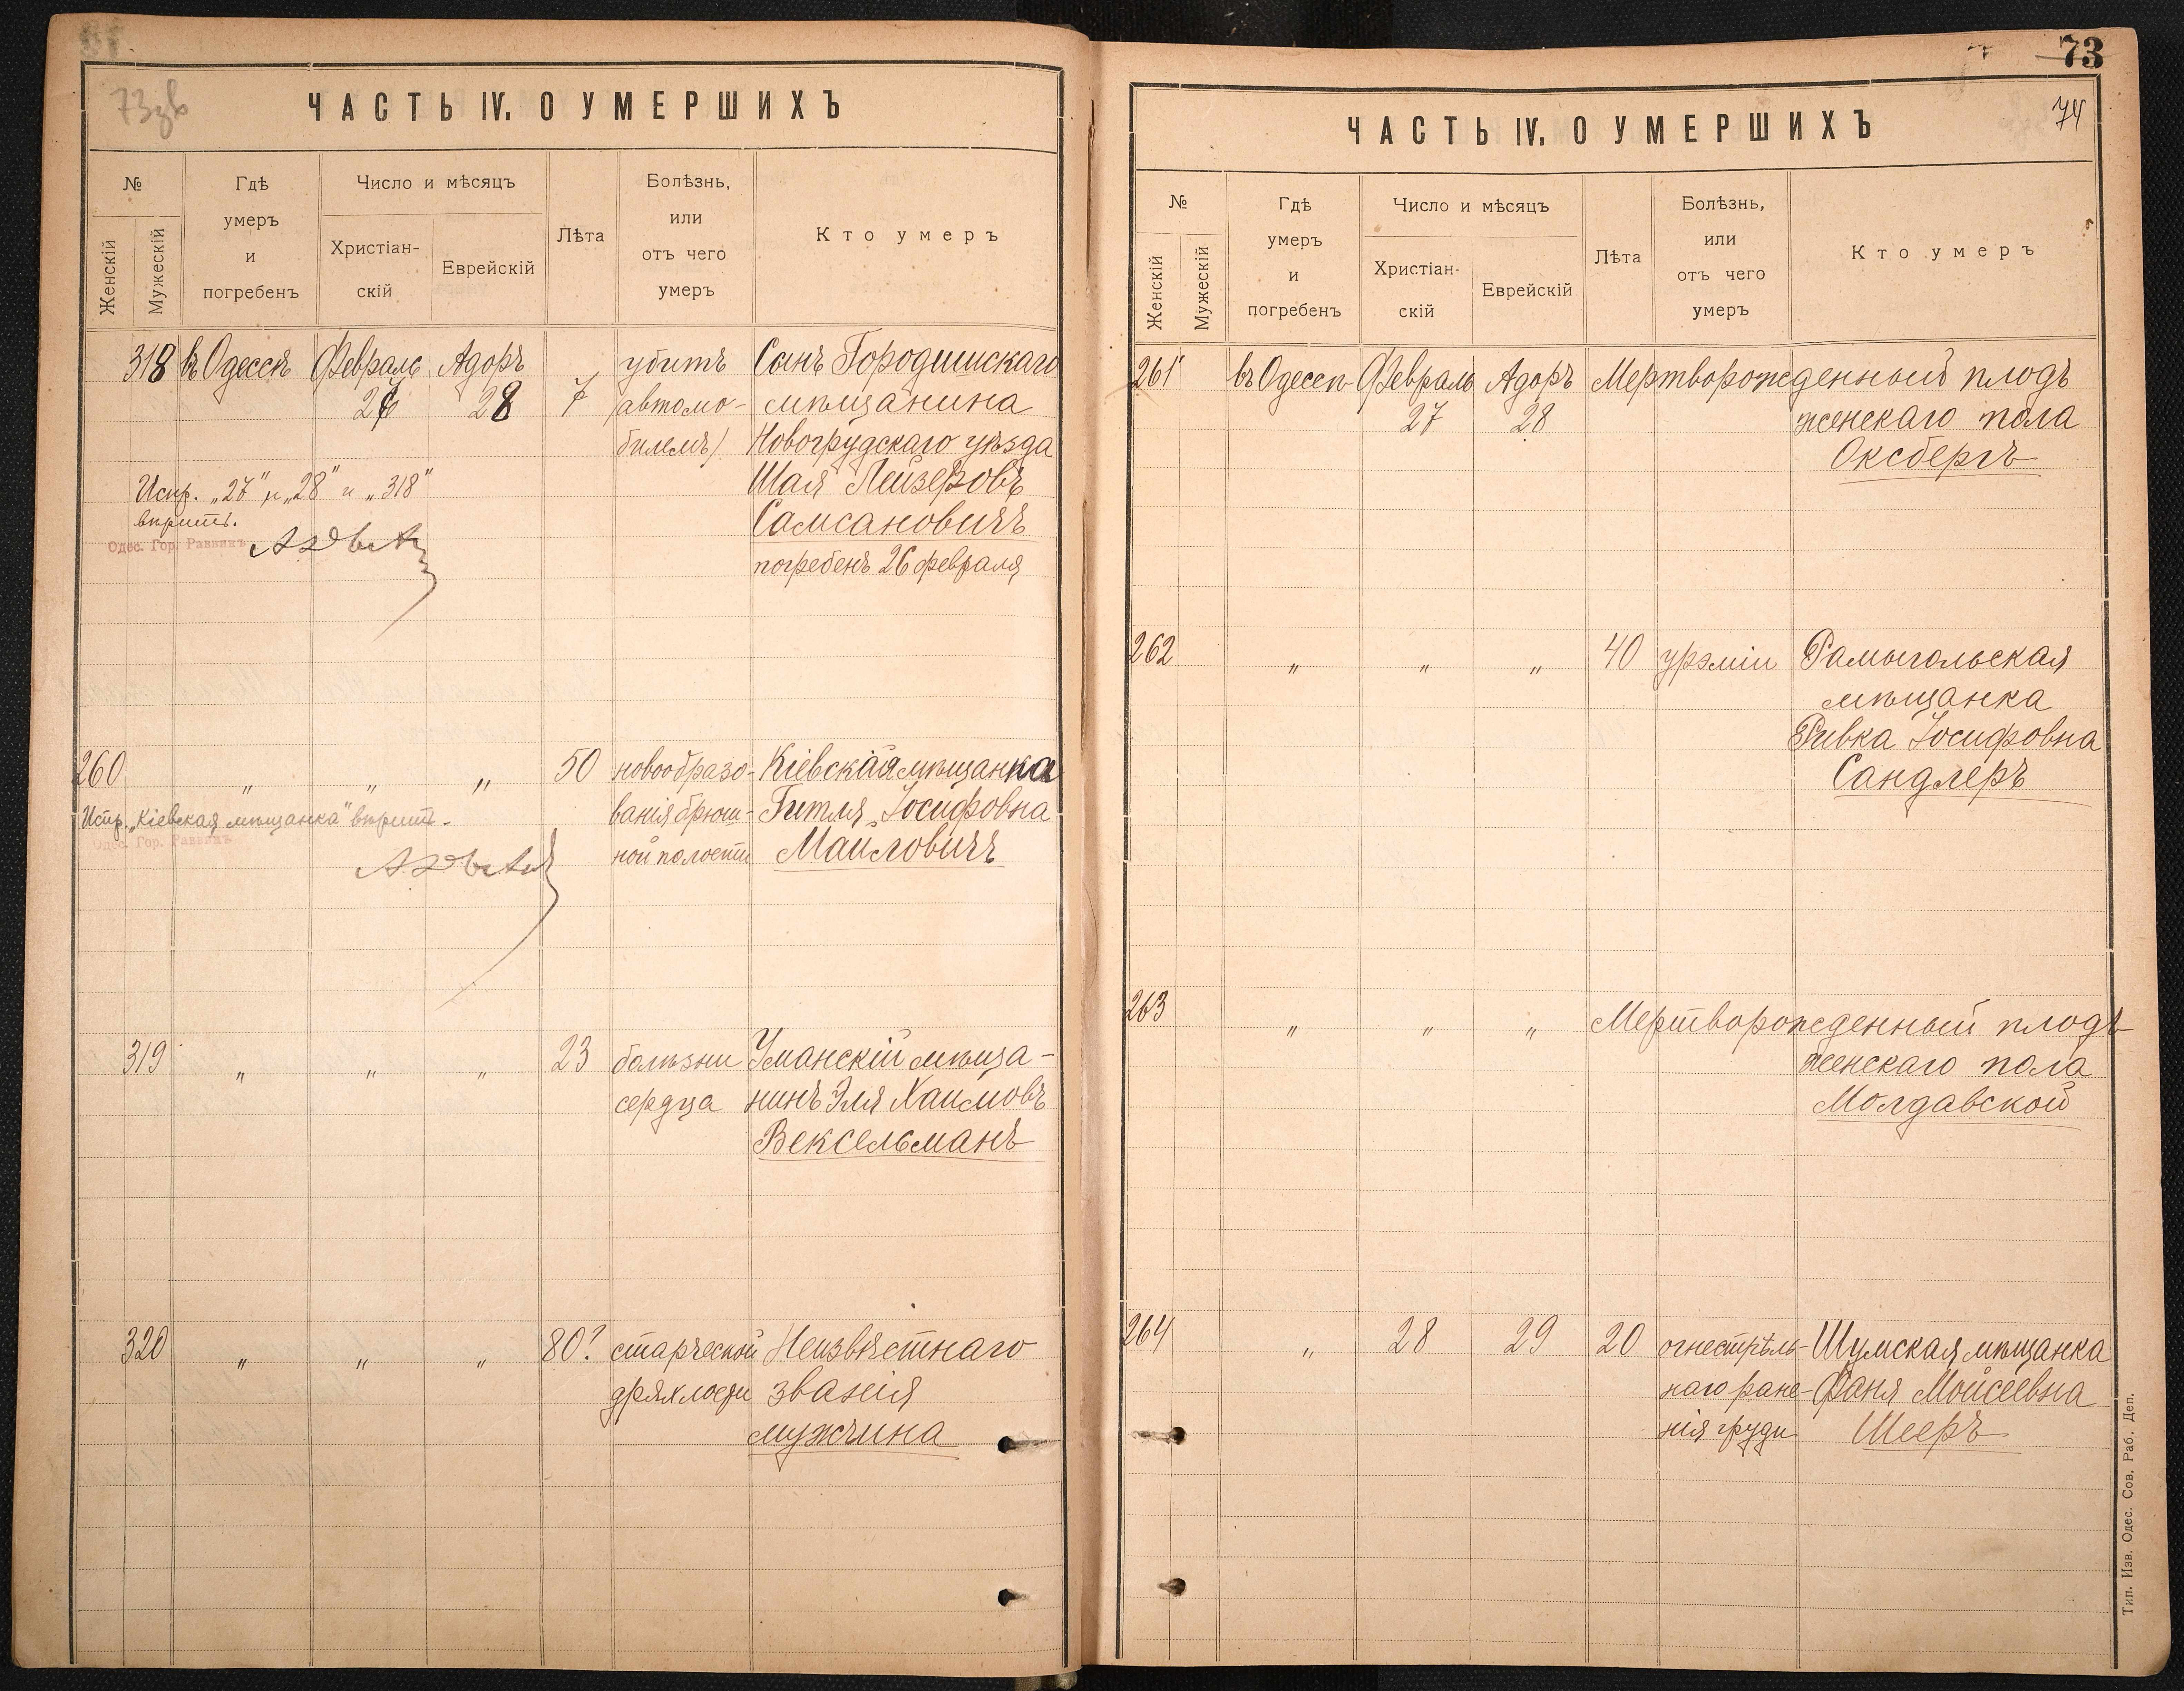 73зв
ЧАСТЬ IV. О УМЕРШИХЪ
№
Женскій
Мужескій
Гдѣ
умеръ
и
погребенъ
Число и мѣсяцъ
Христіан-
скій
Еврейскій
Лѣта
Болѣзнь,
или
отъ чего
умеръ
Кто умеръ
318 въ Одессѣ Февраль Адоръ убитъ Сынъ Городишскаго
27 28 7 /автомо- мѣщанина
билемъ/ Новогрудскаго уѣзда
Испр. „27“ и „28“ и „318“ Шая Лейзеровъ
вѣрить. Самсановичъ
Одес. Гор. Раввинъ
погребенъ 26 февраля
260 „ „ „ 50 новообразо- Кіевская мѣщанка
Испр. „Кіевская мѣщанка“ вѣрить. ванія брюш- Гитля Іосифовна
Одес. Гор. Раввинъ
ной полости Маиловичъ
319 „ „ „ 23 болѣзни Уманскій мѣща-
сердца нинъ Эля Хаимовъ
Вексельманъ
320 „ „ „ 80? старческой Неизвѣстнаго
дряхлости званія
мужчина
73
74
ЧАСТЬ IV. О УМЕРШИХЪ
№
Женскій
Мужескій
Гдѣ
умеръ
и
погребенъ
Число и мѣсяцъ
Христіан-
скій
Еврейскій
Лѣта
Болѣзнь,
или
отъ чего
умеръ
Кто умеръ
261 въ Одессѣ Февраль Адоръ Мертворожденный плодъ
27 28 женскаго пола
Оксбергъ
262 „ „ „ 40 урэміи Рамыгольская
мѣщанка
Ривка Іосифовна
Сандлеръ
263 „ „ „ Мертворожденный плодъ
женскаго пола
Молдавской
264 „ 28 29 20 огнестрѣль- Шумская мѣщанка
наго ране- Фаня Мойсеевна
нія груди Шееръ
Тип. Изв. Одес. Сов. Раб. Деп.